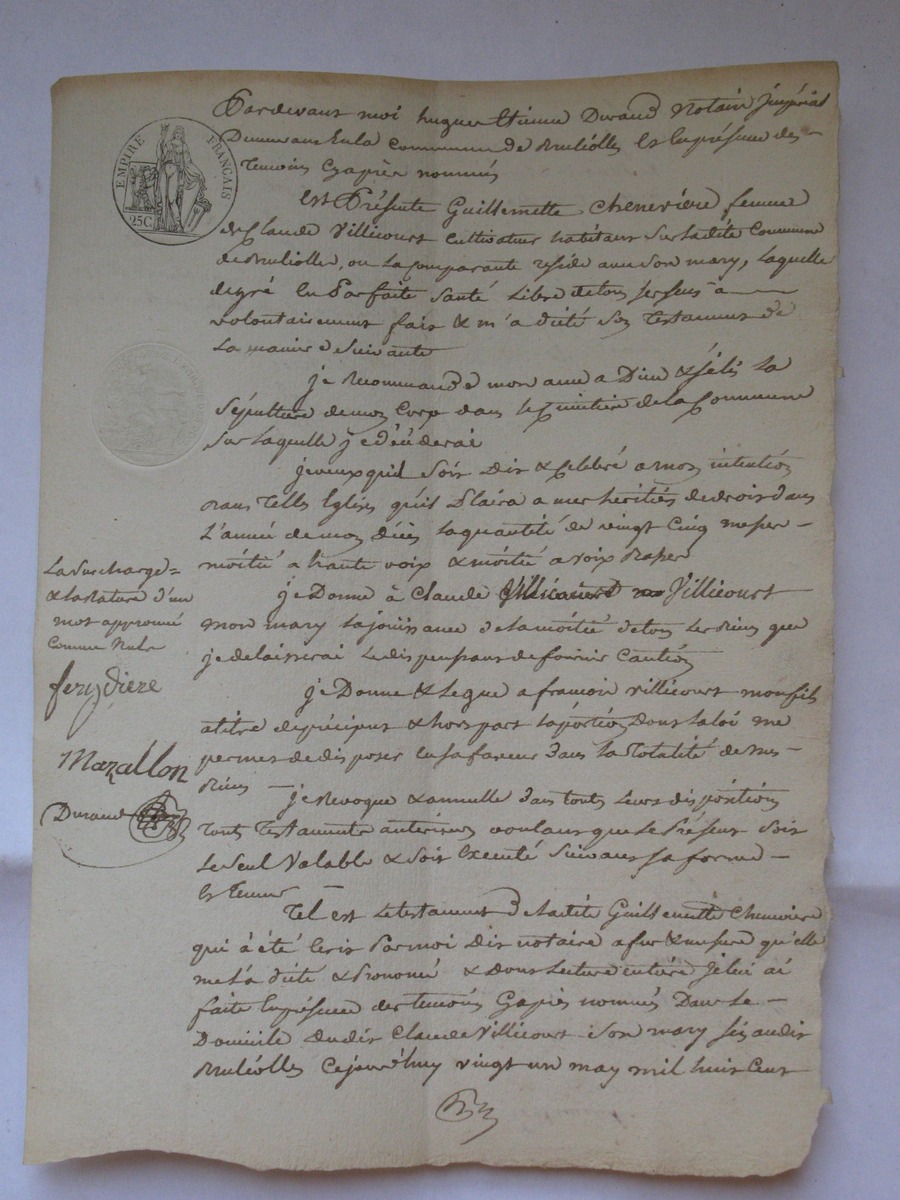 Pardevant moi hugue Etienne Durand Notaire Jmpérial
Demeurant En la Commune de Bruliolles Et En présence des
Temoins Cyaprès nommés
Est Présente Guillemette Chenevière femme
de Claude Villicourt Cultivateur habitant Sur la dite Commune
de Bruliolles, ou la Comparante réside avec Son mary, Laquelle
de gré En Parfaite Santé Libre de tous Ses Sens a
volontairement fait & m'a dicté Son Testament de
La maniere Suivante
je Recommande mon ame a Dieu & j'élis La
Sépulture de mon Corp dans le Cimitière de la Commune
Sur Laquelle je décéderai
je veux qu'il Soit Dit & Célébré a mon intention
dans Telles Eglises qu'il Plaira a mes héritiés de droit dans
L'année de mon décès la quantité de vingt Cinq messes
moitié a haute voix & moitié a voix Basse
je Donne à Claude Villicourt
mon mary la jouissance de la moitié de tous les Biens que
je delaisserai Le dispensant de fournir Caution
je Donne & Legue a francois Villicourt mon fils
a titre de préciput & hors part la portion Dont la loi me
permet de disposer En sa faveur dans la Totalité de mes
Biens — je Revoque & annulle dans toute Leurs dispositions
Touts Testaments anterieurs voulant que Le Présent Soit
Le Seul Valable & Soit Executé Suivant Sa forme
Et Teneur
Tel est Le testament de la dite Guillemette Chenevière
qui à été Ecrit Par moi dit notaire a fur & mesure qu'elle
me l'a dicté & Prononcé & Dont Lecture entiere je lui ai
faite En présence des temoins Cyaprès nommés Dans Le
Domicile dudit Claude Villicourt Son mary Sis audit
Bruliolles Cejourd'huy vingt un may mil huit Cent
EMPIRE FRANÇAIS
25C.
La Surcharge
& la Rature d'un
mot approuvé
Comme Nuls
ferydiere
Mazallon
Durand